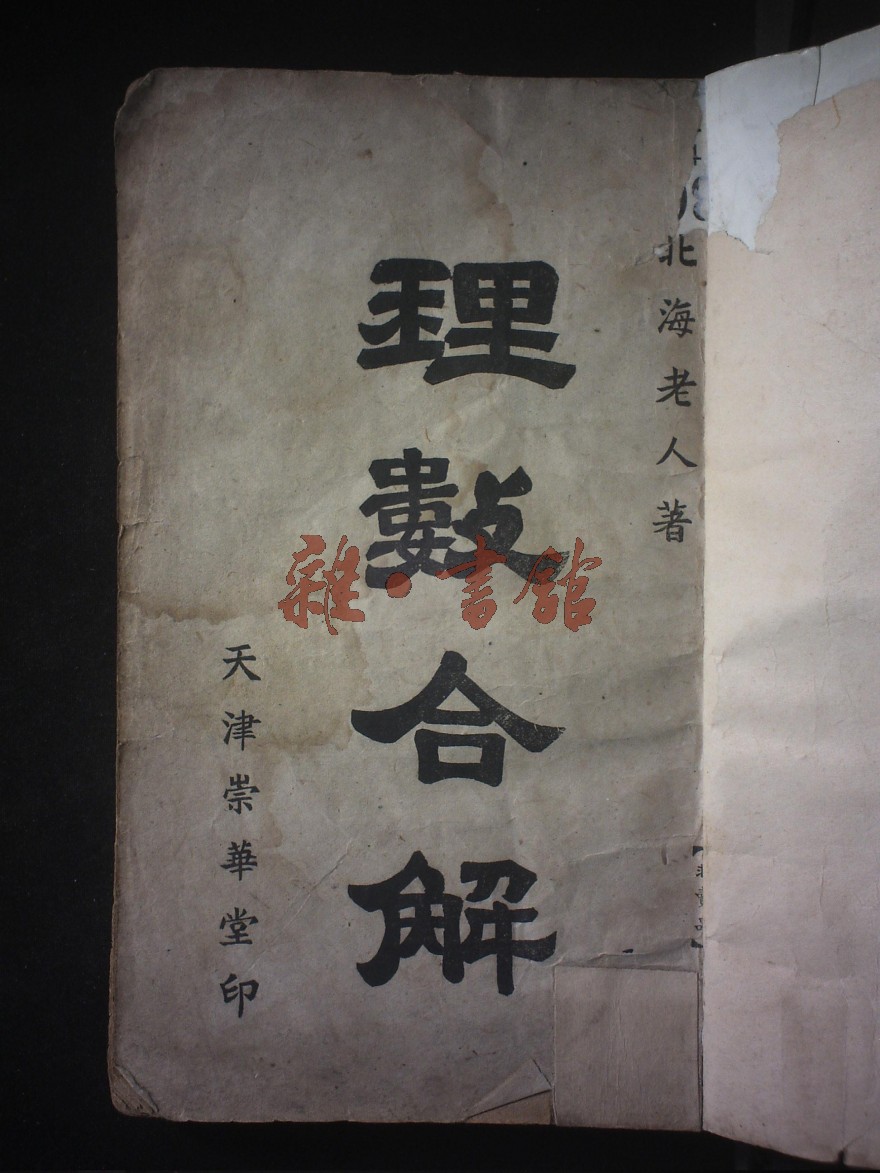 北海老人著
理數合解
天津崇華堂印
雜·書館